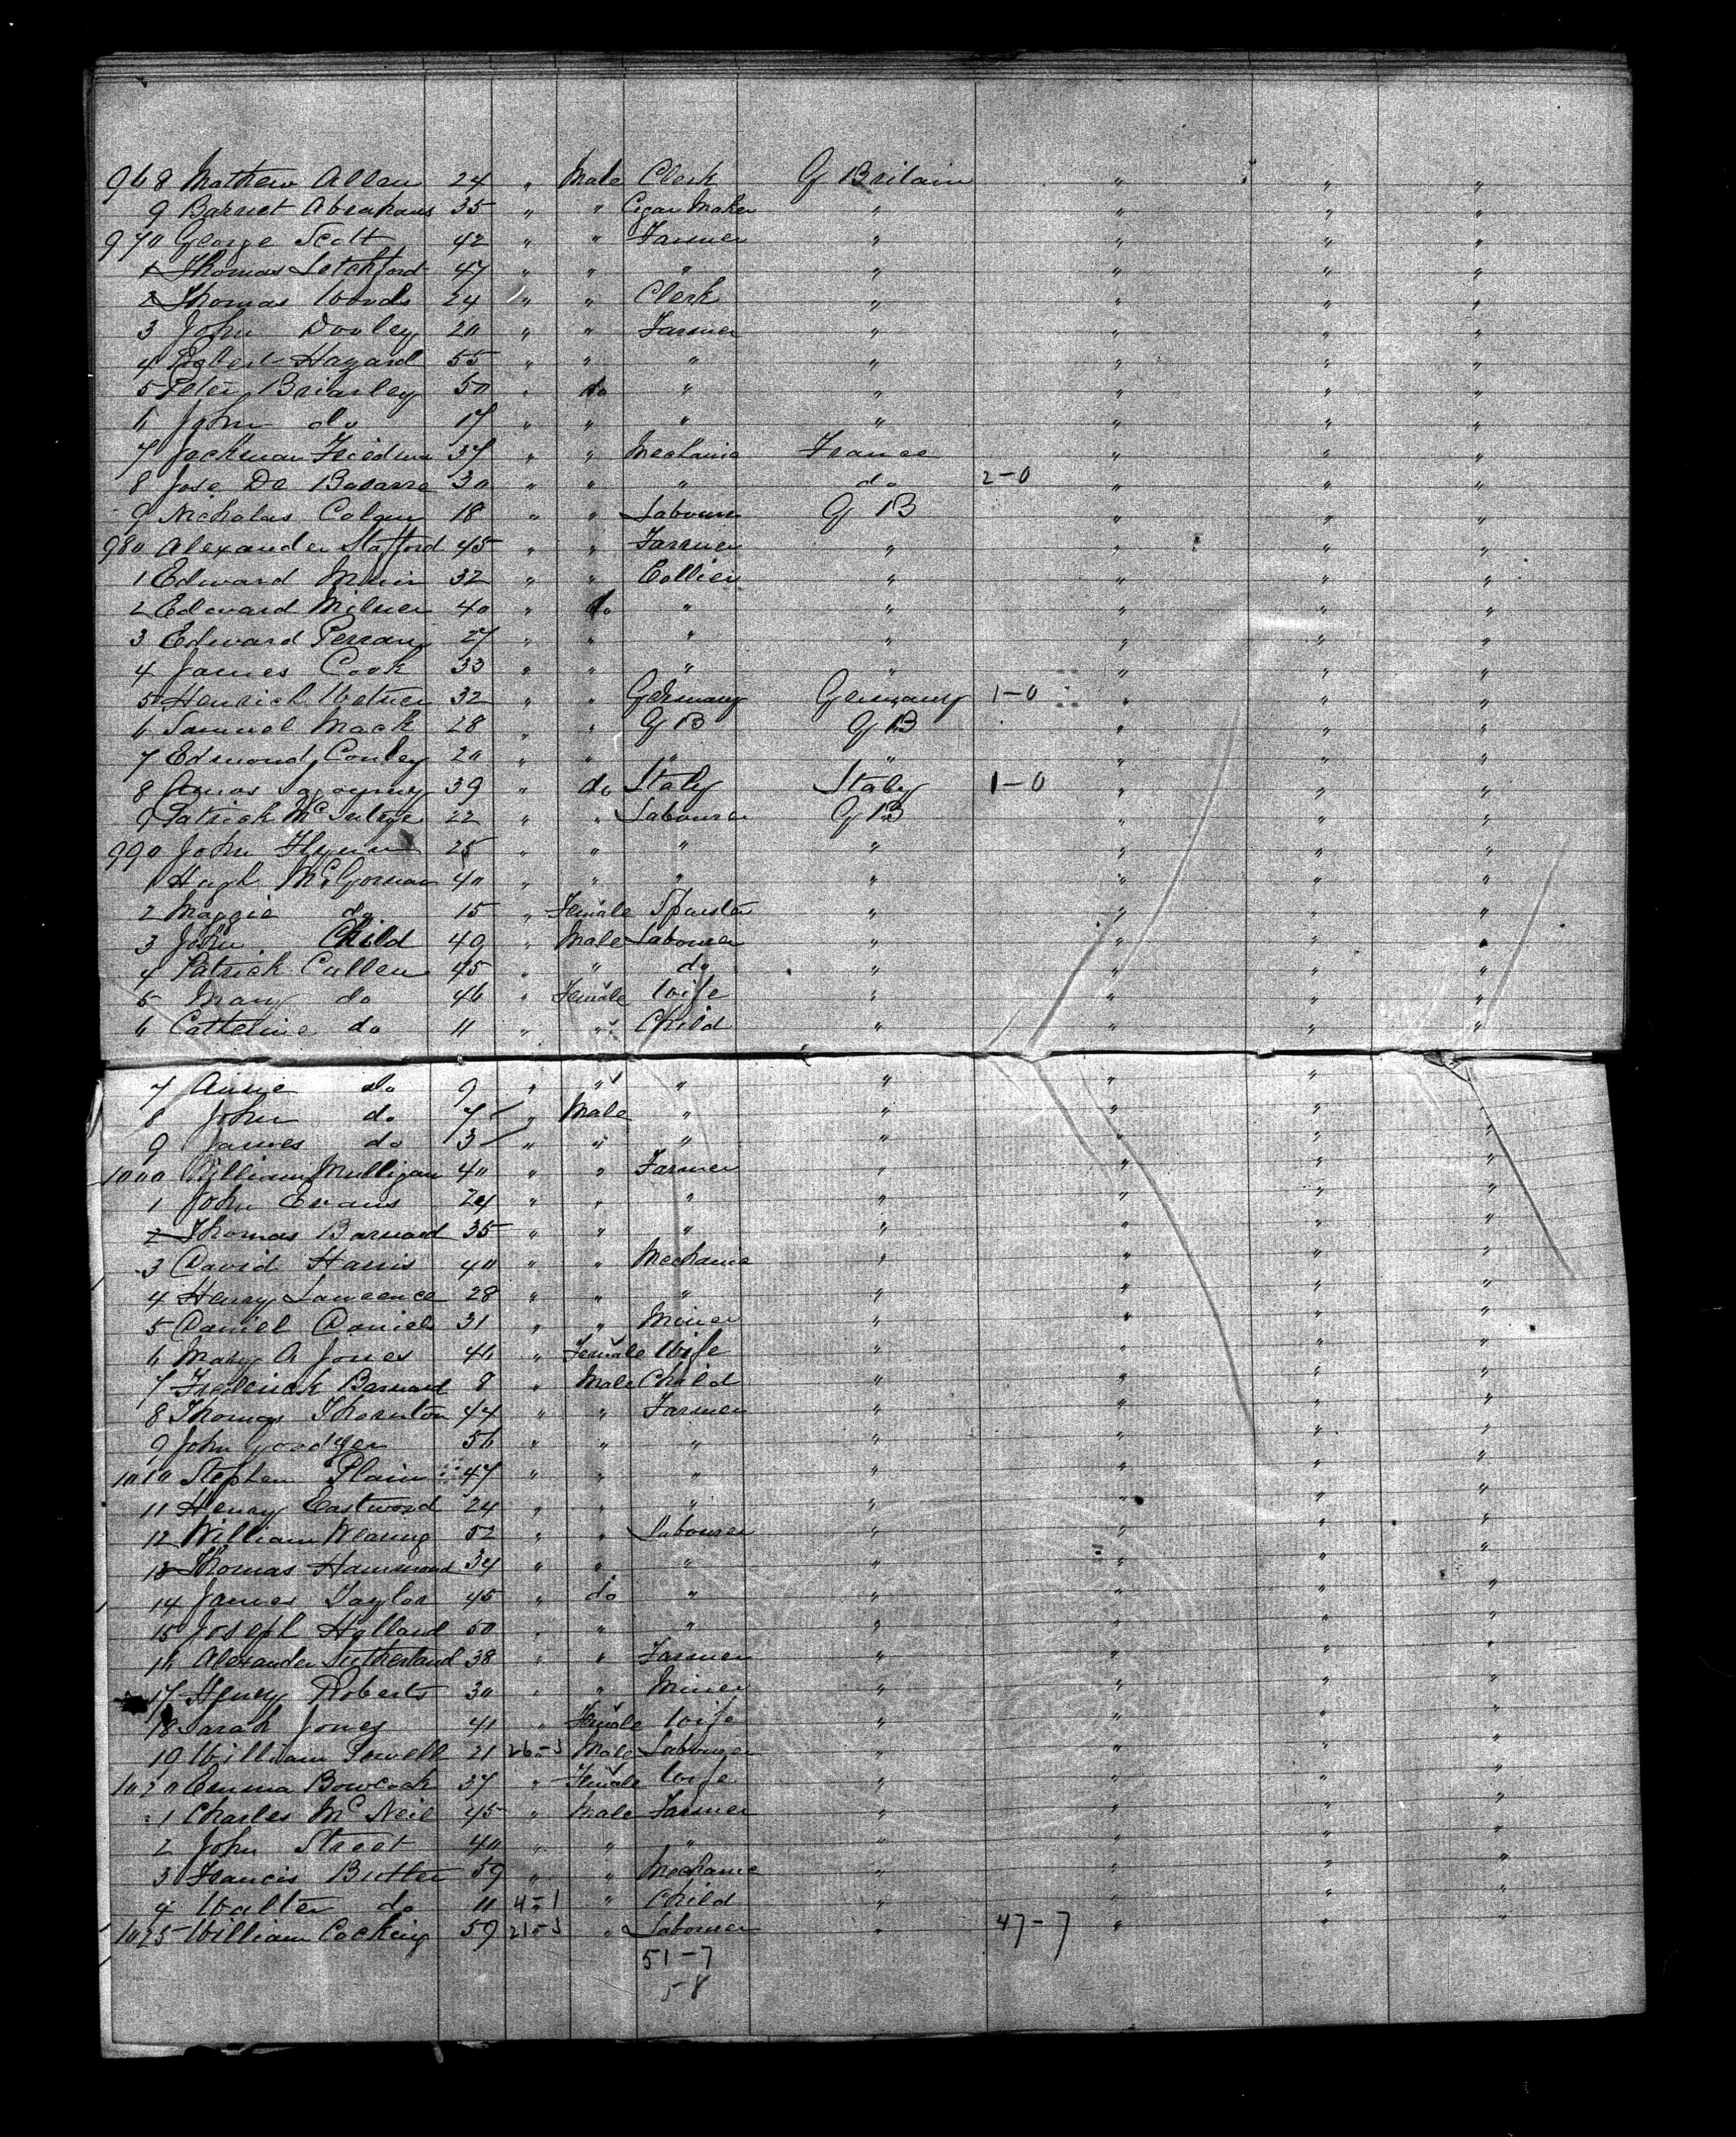 968 Mathew Allen 24 " Male Clerk G Britain " " "
9 Barnet Abrahams 35 " " Cigar Maker " " " "
970 George Scott 42 " " Farmer " " " "
1 Thomas Letchford 47 " " " " " " "
2 Thomas Woods 24 " " Clerk " " " "
3 John Dooley 20 " " Farmer " " " "
4 Robert Hazard 55 " " " " " " "
5 Peter Briarley 50 " do " " " " "
6 John do 17 " " " " " " "
7 Jackman Friedman 37 " " Mechanic France " " "
8 Jose De 30 " " " do 2-0 " " "
9 Nicholas 18 " " Labourer G B " " "
980 Alexander Stafford 45 " " Farmer " " " "
1 Edward Muir 32 " " Collier " " " "
2 Edward Milner 40 " do " " " " "
3 Edward 27 " " " " " " "
4 James Cook 33 " " " " " " "
5 Henrich 32 " " Germany Germany 1-0 " " "
6 Samuel Mack 28 " " G B G B " " "
7 Edmond Conley 20 " " " " " " "
8 39 " do Italy Italy 1-0 " " "
9 Patrick 22 " " Labourer G B " " "
990 John Flynn 25 " " " " " " "
1 Hugh McGorman 40 " " " " " " "
2 Maggie do 15 " Female Spinster " " " "
3 John Child 40 " Male Labourer " " " "
4 Patrick Cullen 45 " " do " " " "
5 Mary do 46 " Female Wife " " " "
6 Catterine do 11 " " Child " " " "
7 Annie do 9 " " " " " " "
8 John do 7 " Male " " " " "
9 James do 3 " " " " " " "
1000 William Mulligan 40 " " Farmer " " " "
1 John Evans 24 " " " " " " "
2 Thomas Barnard 35 " " " " " " "
3 David Harris 40 " " Mechanic " " " "
4 Henry Lawrence 28 " " " " " " "
5 Daniel Daniels 31 " " Miner " " " "
6 Mary A Jones 46 " Female Wife " " " "
7 Frederick Barnard 8 " Male Child " " " "
8 Thomas Thornton 44 " " Farmer " " " "
9 John Goodger 56 " " " " " " "
1010 Stephen Plain 47 " " " " " " "
11 Henry Eastwood 24 " " " " " " "
12 William Waring 52 " " Labourer " " " "
13 Thomas Hammond 34 " " " " " " "
14 James Taylor 45 " do " " " " "
15 Joseph Hylland 50 " " " " " " "
16 Alexander Sutherland 38 " " Farmer " " " "
17 Henry Roberts 30 " " Miner " " " "
18 Sarah Jones 41 " Female Wife " " " "
19 William Powell 21 26-3 Male Labourer " " " "
1020 Emma Bowcock 37 " Female Wife " " " "
1 Charles McNeil 45 " Male Farmer " " " "
2 John Street 40 " " " " " " "
3 Francis Butter 59 " " Mechanic " " " "
4 Walter do 11 4-1 " Child " " " "
1025 William Cocking 59 21-3 " Labourer " 47-7 " " "
51-7
5-8